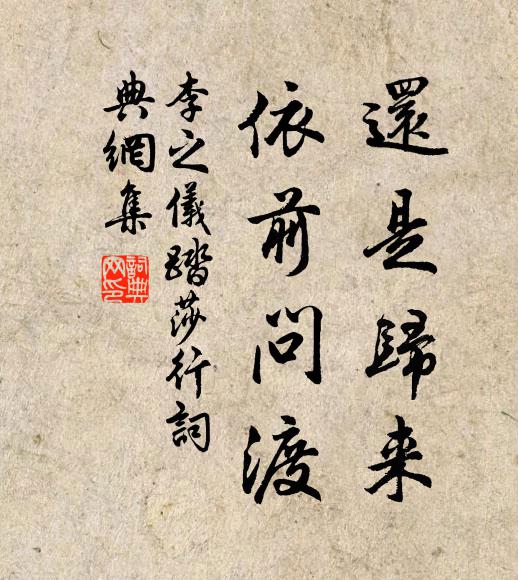 還是歸来
依前問渡
李之儀踏莎行詞
典網集
詞典网印